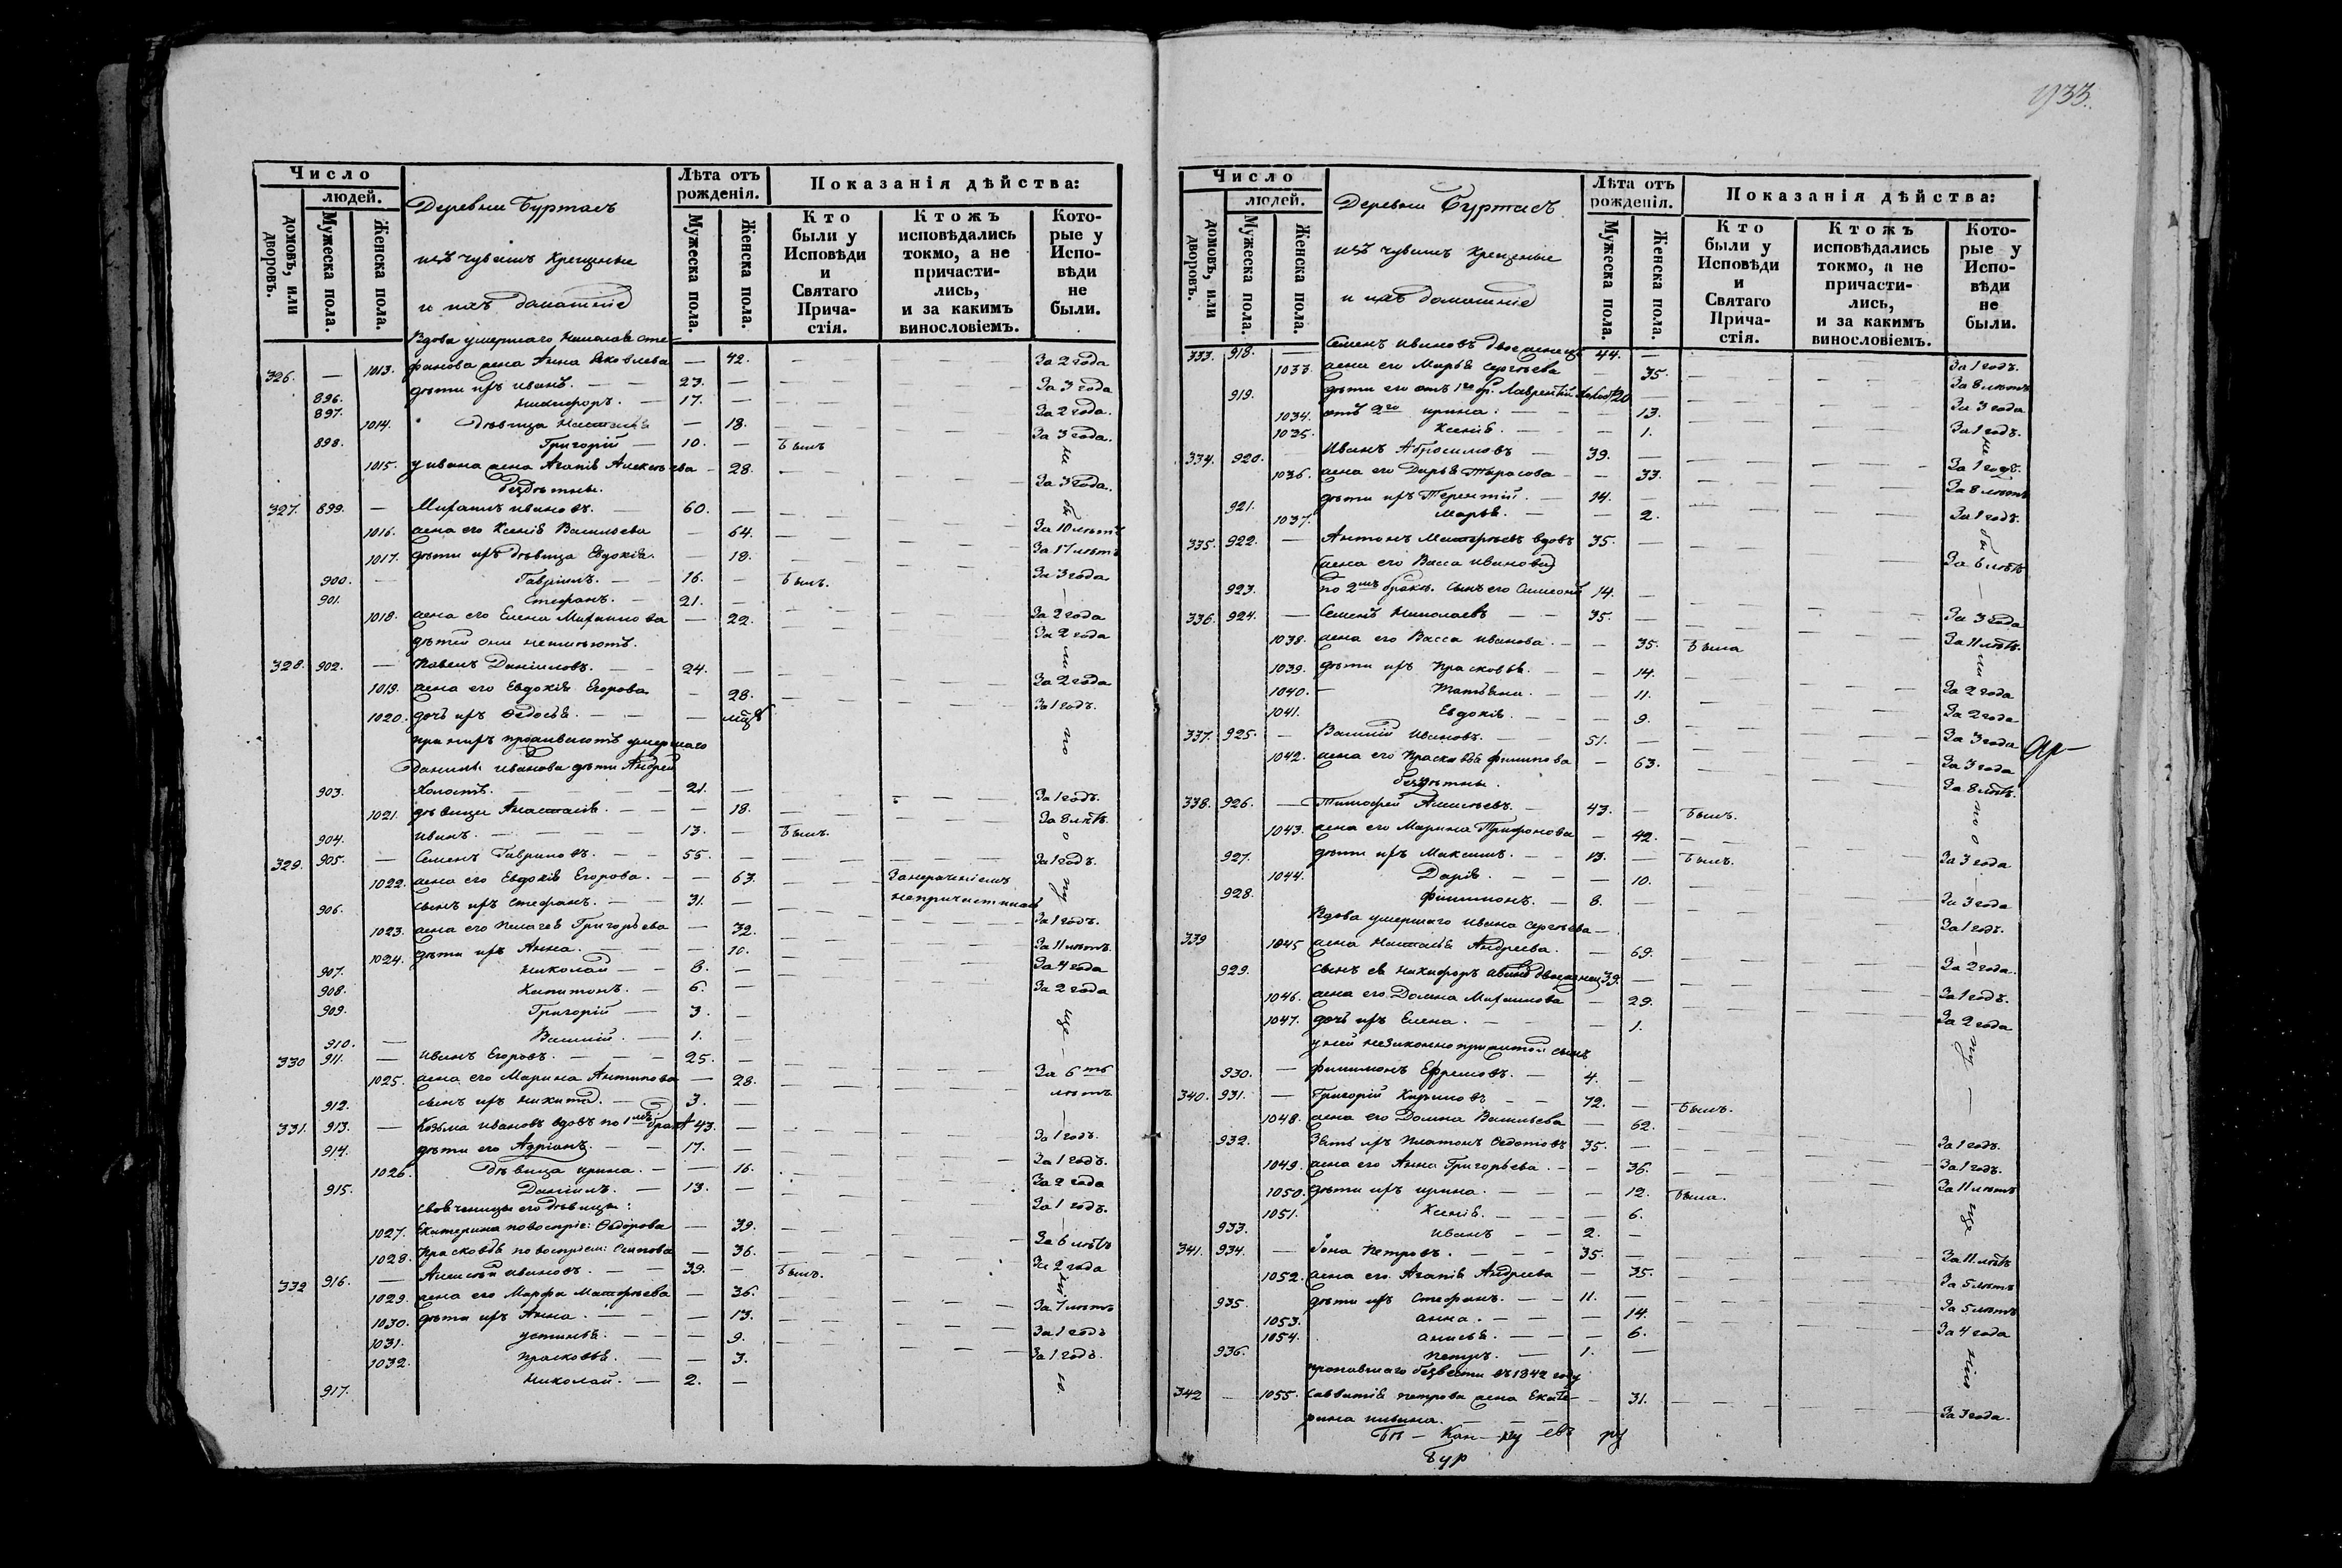 933.
Число
людей.
домовъ, или дворовъ.
Мужеска пола.
Женска пола.
Деревни Буртасъ
изъ чувашъ крещеные
и ихъ домашніе
Лѣта отъ рожденія.
Мужеска пола.
Женска пола.
Показанія дѣйства:
Кто были у Исповѣди и Святаго Причастія.
Ктожъ исповѣдались токмо, а не причастились, и за какимъ винословіемъ.
Которые у Исповѣди не были.
Вдова умершаго Николая Сте-
326. — 1013. фанова жена Анна Яковлева — 42. За 2 года
896. дѣти ихъ Иванъ. — 23. — За 3 года
897. Никифоръ. — 17. — За 2 года.
1014. дѣвица Настасья — 18. За 3 года.
898. Григорій — 10. — былъ
1015. у Ивана жена Агапія Алексѣева — 28. За 3 года.
бездѣтны.
327. 899. — Михаилъ Ивановъ. — 60. — За 10 лѣтъ
1016. жена его Ксенія Васильева — 64. За 17 лѣтъ
1017. дѣти ихъ дѣвица Евдокія. — 18. За 3 года
900. — Гавріилъ. — 16. — былъ.
901. Стефанъ. — 21. — За 2 года
1018. жена его Елена Михайлова — 22. За 2 года
дѣтей они неимѣютъ.
328. 902. — Павелъ Даніиловъ. — 24. — За 2 года
1019. жена его Евдокія Егорова — 28. За 1 годъ.
1020. дочь ихъ Ѳедосья. —
при нихъ проживаютъ умершаго
Даніила Иванова дѣти Андрей
903. холостъ. — 21. — За 1 годъ.
1021. дѣвица Анастасія — 18. За 8 лѣтъ.
904. Иванъ. — 13. — былъ.
329. 905. — Семенъ Гавриловъ. — 55. — За 1 годъ.
1022. жена его Евдокія Егорова. — 63. За нерачніемъ
906. сынъ ихъ Стефанъ. — 31. — За 1 годъ.
1023. жена его Пелагея Григорьева — 32. За 11 лѣтъ.
1024. дѣти ихъ Анна. — 10. За 4 года
907. Николай — 8. — За 2 года
908. Капитонъ. — 6. —
909. Григорій — 3. —
910. — Василій. — 1. —
330 911. — Иванъ Егоровъ. — 25. — За 6ть
1025. жена его Марина Антипова — 28. лѣтъ
912. сынъ ихъ Никита. — 3. —
331. 913. — Козьма Ивановъ вдовъ по 1мъ бракѣ 43. — За 1 годъ.
914. дѣти его Адріанъ. — 17. — За 1 годъ.
1026. дѣвица Ирина. — 16. За 2 года
915. Даніилъ. — 13. — За 1 годъ.
своячницы его дѣвицы:
1027. Екатерина по воспріе: Ѳедорова — 39. За 6 лѣтъ
1028. Прасковья по воспріем: Осипова — 36. За 2 года
332 916. — Алексѣй Ивановъ. — 39. — былъ.
1029. жена его Марфа Матфѣева — 36. За 7 лѣтъ
1030. дѣти ихъ Анна. — 13. За 1 годъ
1031. Устинья. — 9. За 1 годъ.
1032. Прасковья. — 3.
917. Николай. — 2. —
Число
людей.
домовъ, или дворовъ.
Мужеска пола.
Женска пола.
Деревни Буртасъ
изъ чувашъ крещеные
и ихъ домашніе
Лѣта отъ рожденія.
Мужеска пола.
Женска пола.
Показанія дѣйства:
Кто были у Исповѣди и Святаго Причастія.
Ктожъ исповѣдались токмо, а не причастились, и за какимъ винословіемъ.
Которые у Исповѣди не были.
333. 918. — Семенъ Ивановъ двоеженецъ 44. — За 1 годъ.
1033. жена его Марья Сергѣева — 35. За 8 лѣтъ
919. дѣти его отъ 1го бр. Лаврентій холост 20 — За 3 года
1034. отъ 2го Ирина: — 13. За 1 годъ.
1035. Ксенія. — 1.
334. 920. Иванъ Абросимовъ — 39. — За 1 годъ.
1036. жена его Дарья Тарасова — 33. За 8 лѣтъ
921. дѣти ихъ Терентій. — 14. — За 1 годъ.
1037. Марья. — 2.
335. 922. — Антонъ Матфѣевъ вдовъ 35. — За 6 лѣтъ
(жена его Васса Иванова)
923. по 2мъ бракѣ. сынъ его Симеонъ 14. —
336. 924. — Семенъ Николаевъ — 35. — За 3 года
1038. жена его Васса Иванова. — 35. была За 11 лѣтъ.
1039. дѣти ихъ Прасковья. — 14.
1040. — Татьяна. — 11. За 2 года
1041. Евдокія. — 9. За 2 года
337. 925. — Василій Ивановъ. — 51. — За 3 года
1042. жена его Прасковья Филипова — 63. За 3 года
бездѣтны. За 8 лѣтъ.
338. 926. — Тимофей Алексѣевъ. — 43. — былъ.
1043. жена его Марина Трифонова — 42.
927. дѣти ихъ Максимъ. — 13. — былъ. За 3 года
1044. Дарія. — 10.
928. Филимонъ. — 8. — За 3 года
Вдова умершаго Ивана Сергѣева — За 1 годъ.
339 1045 жена Настасья Андреева. — 69.
929. сынъ ея Никифоръ Ивано двоеженец 39. — За 2 года.
1046. жена его Домна Михайлова — 29. За 1 годъ.
1047. дочь ихъ Елена. — 1. За 2 года
у ней незаконноприжитой сынъ
930. — Филимонъ Ефремовъ. — 4. —
340. 931. — Григорій Кириловъ — 72. — былъ.
1048. жена его Домна Васильева — 62.
932. Зять ихъ Платонъ Ѳедотовъ 35. — За 1 годъ.
1049. жена его Анна Григорьева. — 36. За 1 годъ.
1050. дѣти ихъ Ирина. — 12. была. За 11 лѣтъ
1051. Ксенія. — 6.
933. Иванъ — 2. —
341. 934. — Іона Петровъ. — 35. — За 11 лѣтъ
1052. жена его Агапія Андреева — 35. За 5 лѣтъ
935. дѣти ихъ Стефанъ. — 11. — За 5 лѣтъ
1053. Анна. — 14. За 4 года
1054. Анисья. — 6.
936. Петръ. — 1. —
пропавшаго безвести въ 1842 году
342 — 1055. Савватія Петрова жена Екате- — 31.
рина За 3 года.
Бур